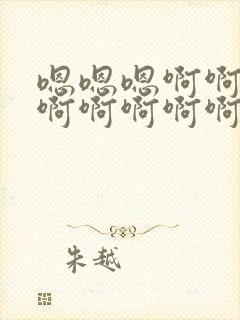 嗯嗯嗯啊啊
啊啊啊啊啊
朱越